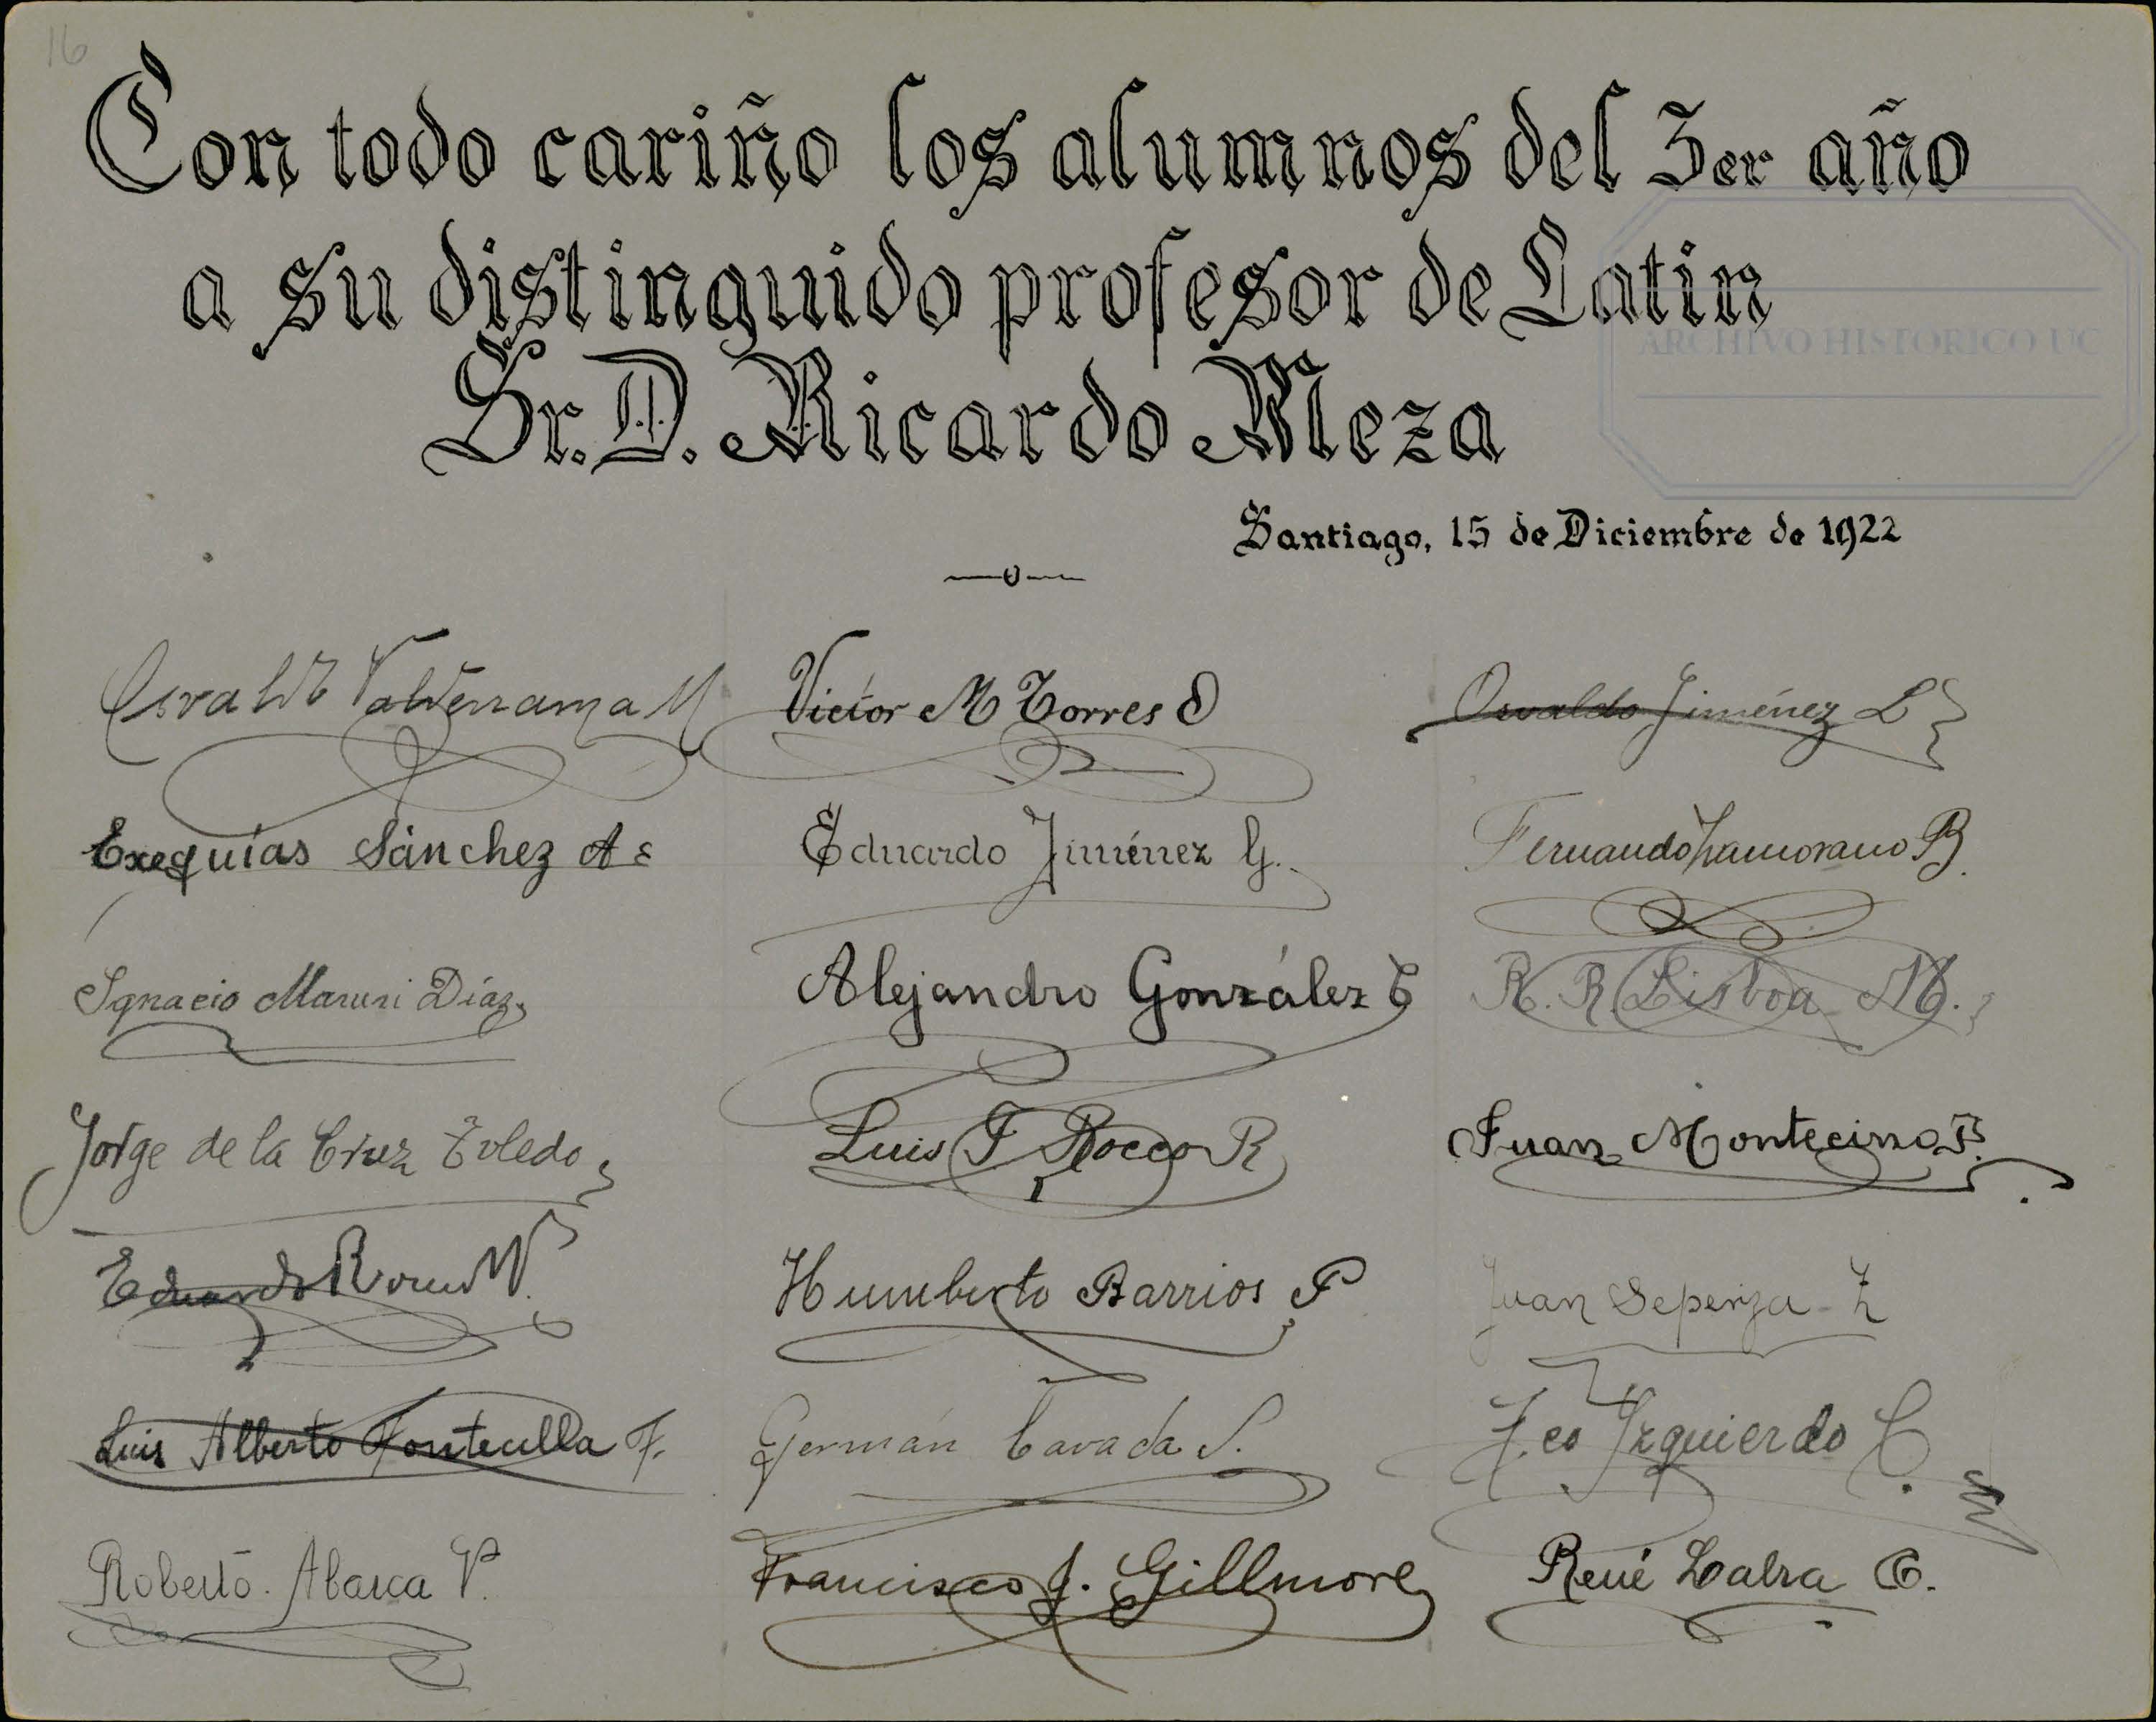 16
Con todo cariño los alumnos del 3er año
a su distinguido profesor de Latin
Sr. D. Ricardo Meza
ARCHIVO HISTORICO UC
Santiago, 15 de Diciembre de 1922
Osvaldo Valderrama M
Victor M Torres O
Osvaldo Jiménez L
Exequías Sánchez A
Eduardo Jiménez G.
Fernando Zamorano B.
Ignacio Maruri Díaz
Alejandro González T
R. R. Lisboa M.
Jorge de la Cruz Toledo
Luis F Rocco R
Juan Montecino B.
Eduardo
Humberto Barrios P
Juan Sepenza Z
Luis Alberto Fontecilla F.
Germán Cavada S.
F.co Izquierdo C.
Roberto Abarca V.
Francisco J. Gillmore
René Labra C.